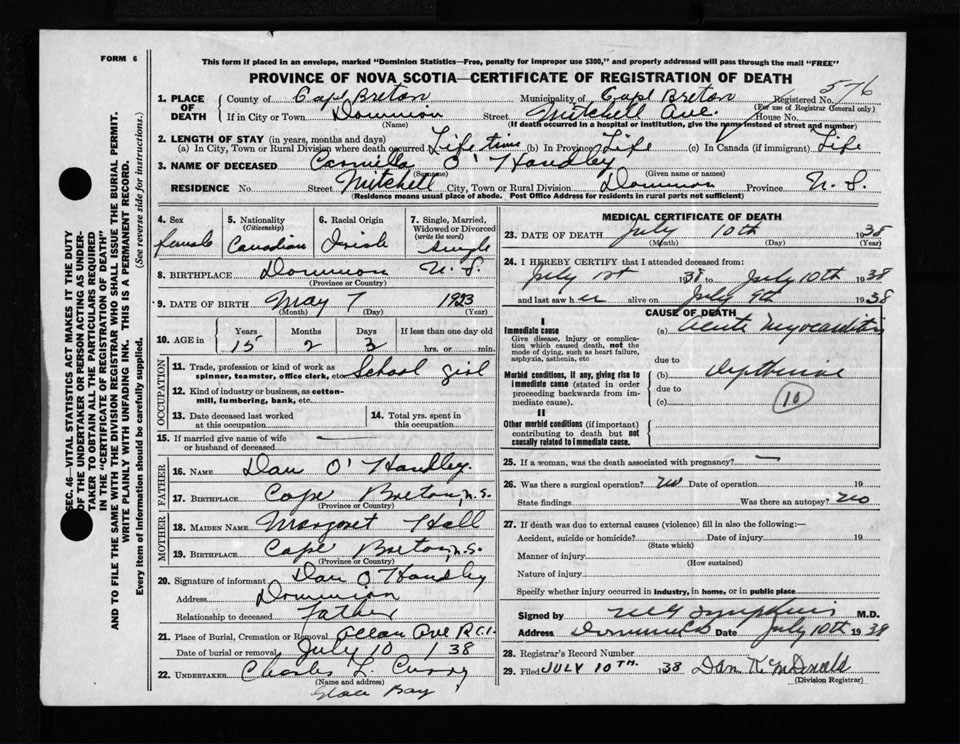 FORM 6
This form if placed in an envelope, marked "Dominion Statistics—Free, penalty for improper use $300," and properly addressed will pass through the mail "FREE"
PROVINCE OF NOVA SCOTIA—CERTIFICATE OF REGISTRATION OF DEATH
576
1. PLACE OF DEATH County of Cape Breton Municipality of Cape Breton Registered No.
(For use of Registrar General only)
If in City or Town Dominion Street Mitchell Ave. House No.
(Name) (If death occurred in a hospital or institution, give the name instead of street and number)
2. LENGTH OF STAY (in years, months and days)
(a) In City, Town or Rural Division where death occurred Life time (b) In Province Life (c) In Canada (if immigrant) Life
3. NAME OF DECEASED Camilla O'Handley
(Surname) (Given name or names)
RESIDENCE No. Street Mitchell City, Town or Rural Division Dominion Province N. S.
(Residence means usual place of abode. Post Office Address for residents in rural parts not sufficient)
4. Sex female
5. Nationality (Citizenship) Canadian
6. Racial Origin Irish
7. Single, Married, Widowed or Divorced (write the word) single
8. BIRTHPLACE Dominion N. S.
(Province or Country)
9. DATE OF BIRTH May 7 1923
(Month) (Day) (Year)
10. AGE in Years 15 Months 2 Days 3 If less than one day old hrs. or min.
OCCUPATION
11. Trade, profession or kind of work as spinner, teamster, office clerk, etc. School girl
12. Kind of industry or business, as cotton-mill, lumbering, bank, etc.
13. Date deceased last worked at this occupation
14. Total yrs. spent in this occupation
15. If married give name of wife or husband of deceased —
FATHER
16. NAME Dan O'Handley.
17. BIRTHPLACE Cape Breton, N.S.
(Province or Country)
MOTHER
18. MAIDEN NAME Margaret Hall
19. BIRTHPLACE Cape Breton, N.S.
(Province or Country)
20. Signature of informant Dan O'Handley
Address Dominion
Relationship to deceased Father
21. Place of Burial, Cremation or Removal Allan Ave R.C.
Date of burial or removal July 10 / 38
22. UNDERTAKER Charles L. Curry
(Name and address)
Glace Bay
MEDICAL CERTIFICATE OF DEATH
23. DATE OF DEATH July 10th 1938
(Month) (Day) (Year)
24. I HEREBY CERTIFY that I attended deceased from:
July 1st 1938 to July 10th 1938
and last saw her alive on July 9th 1938
CAUSE OF DEATH
I
Immediate cause
Give disease, injury or complication which caused death, not the mode of dying, such as heart failure, asphyxia, asthenia, etc
(a) Acute Myocarditis
due to
Morbid conditions, if any, giving rise to immediate cause (stated in order proceeding backwards from immediate cause).
(b) diphtheria
due to
(c)
10
II
Other morbid conditions (if important) contributing to death but not causally related to immediate cause.
25. If a woman, was the death associated with pregnancy? —
26. Was there a surgical operation? no Date of operation 19
State findings Was there an autopsy? no
27. If death was due to external causes (violence) fill in also the following:—
Accident, suicide or homicide? Date of injury 19
(State which)
Manner of injury
(How sustained)
Nature of injury
Specify whether injury occurred in industry, in home, or in public place
Signed by M.D.
Address Dominion Date July 10th 1938
28. Registrar's Record Number
29. Filed JULY 10TH. 1938 Dan K McDonald
(Division Registrar)
SEC. 46—VITAL STATISTICS ACT MAKES IT THE DUTY
OF THE UNDERTAKER OR PERSON ACTING AS UNDER-
TAKER TO OBTAIN ALL THE PARTICULARS REQUIRED
IN THE "CERTIFICATE OF REGISTRATION OF DEATH"
AND TO FILE THE SAME WITH THE DIVISION REGISTRAR WHO SHALL ISSUE THE BURIAL PERMIT.
WRITE PLAINLY WITH UNFADING INK. THIS IS A PERMANENT RECORD.
Every item of information should be carefully supplied. (See reverse side for instructions.)